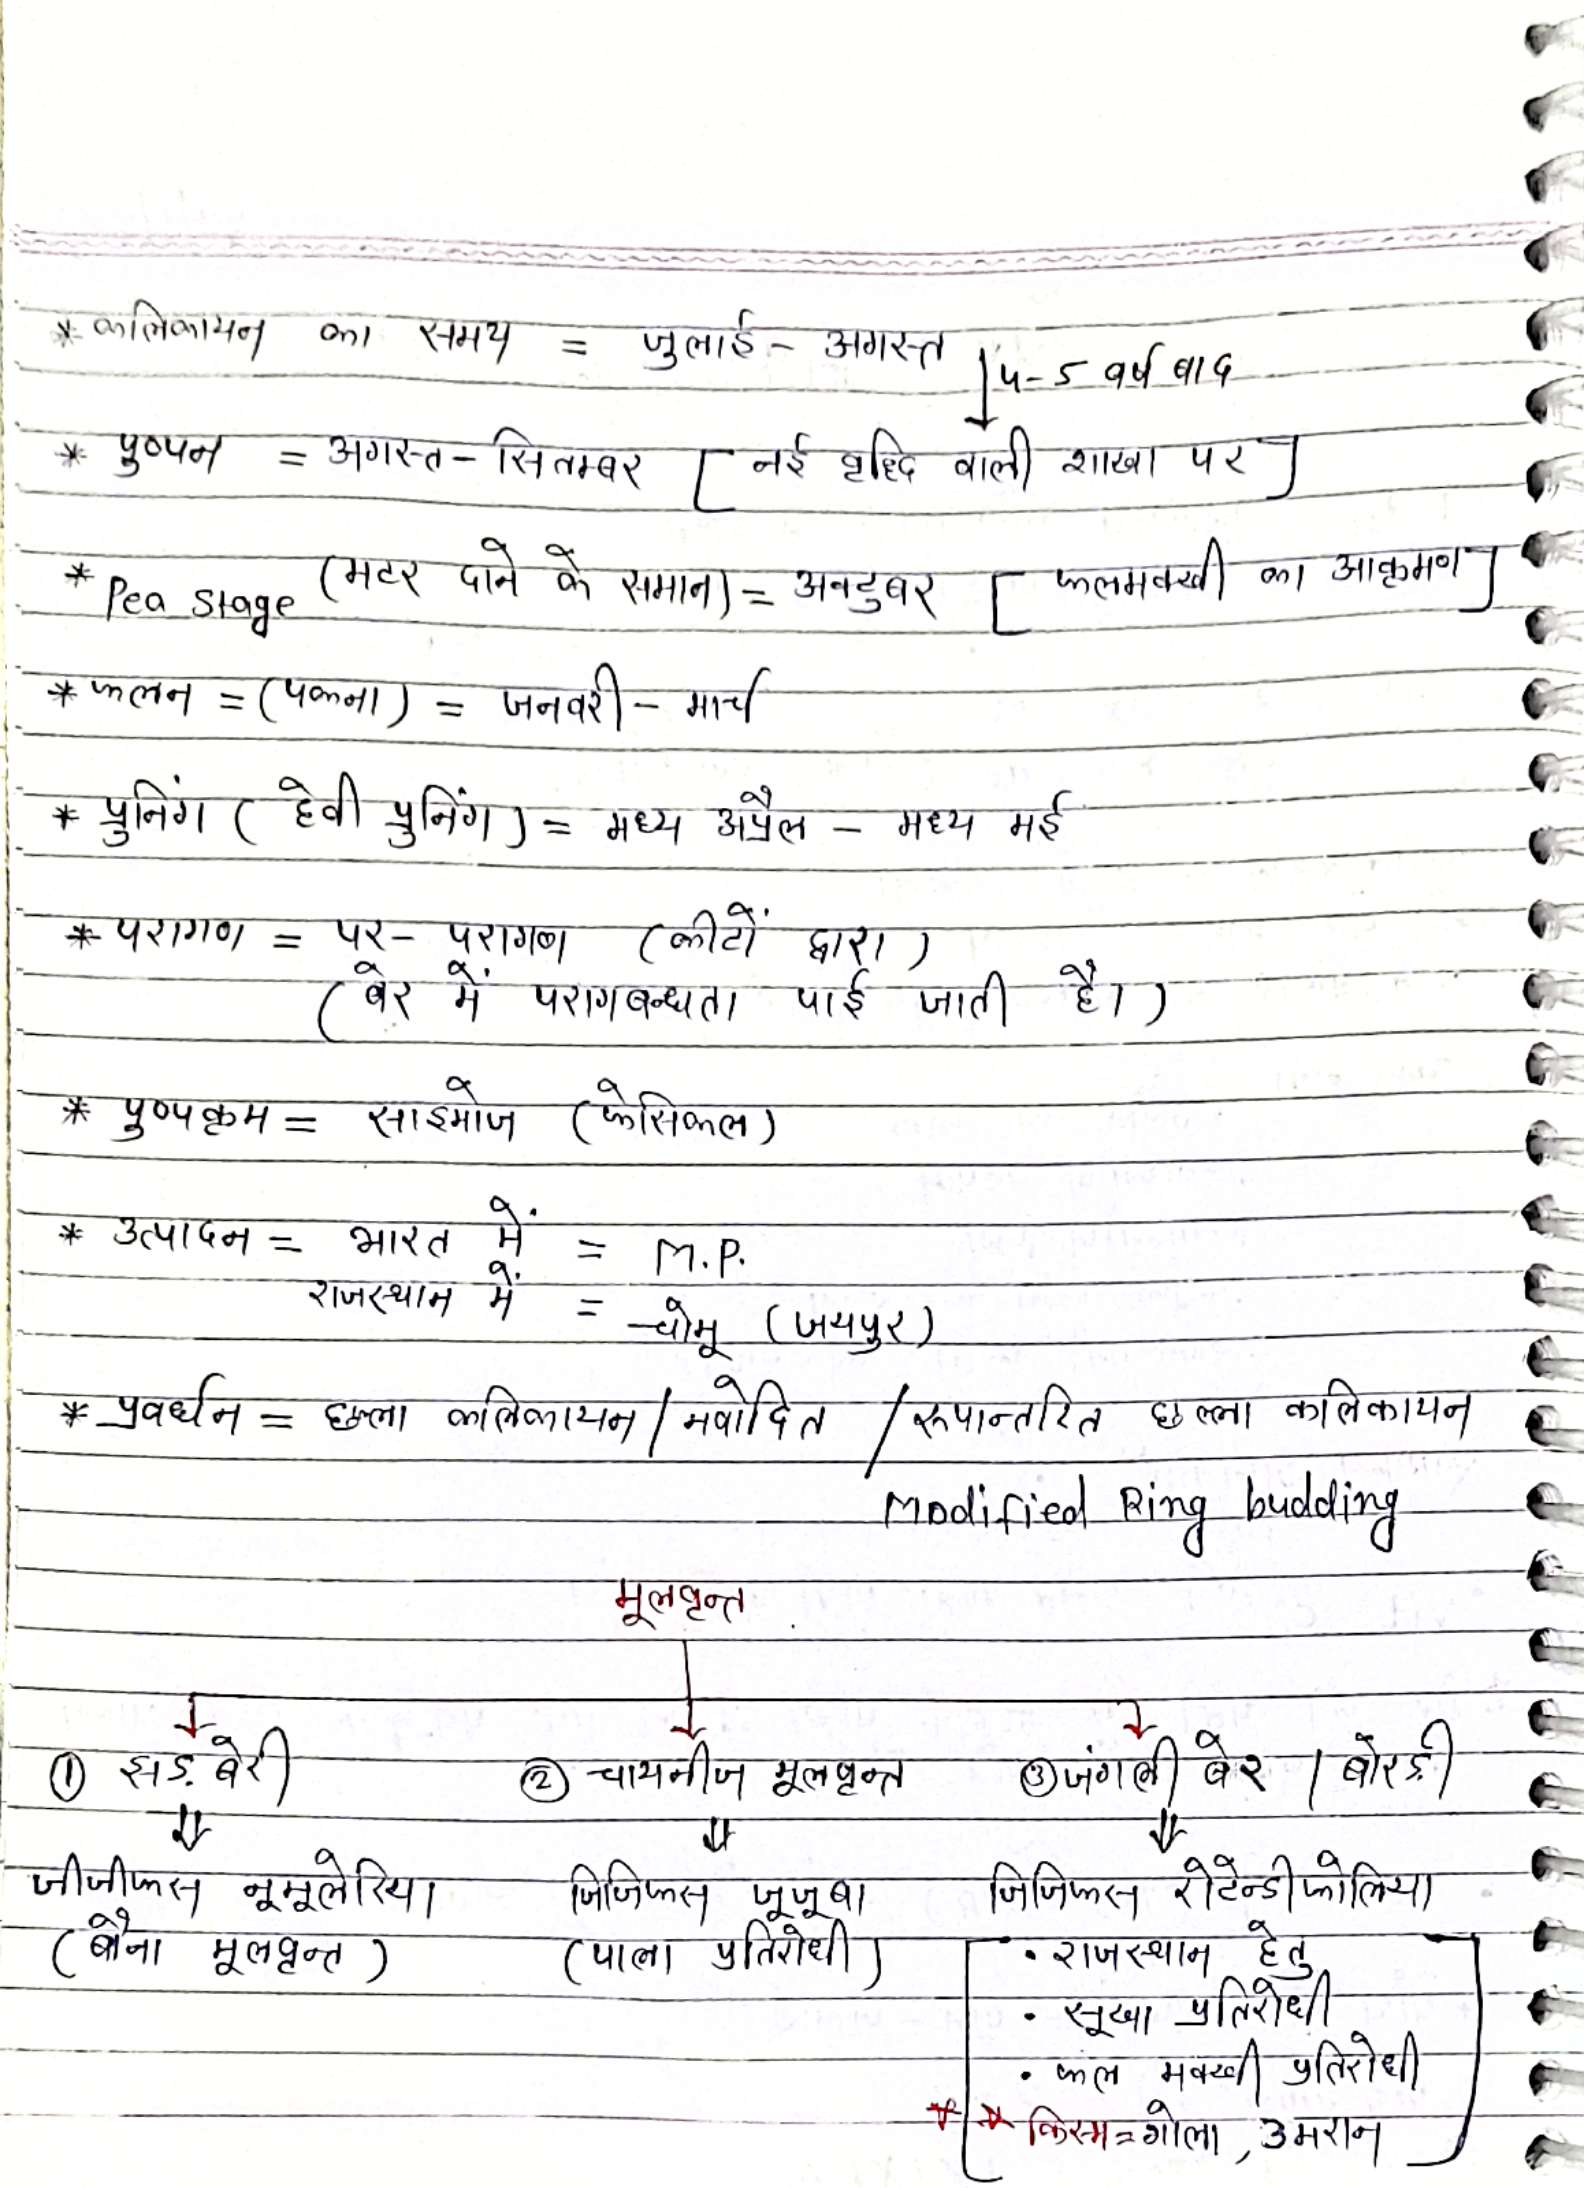 * कलिकायन का समय = जुलाई - अगस्त
↓ 4-5 वर्ष बाद
* पुष्पन = अगस्त - सितम्बर [नई वृद्धि वाली शाखा पर]
* Pea Stage (मटर दाने के समान) = अक्टुबर [फलमक्खी का आक्रमण]
* फलन = (पकना) = जनवरी - मार्च
* प्रुनिंग (हेवी प्रुनिंग) = मध्य अप्रैल - मध्य मई
* परागण = पर - परागण (कीटों द्वारा)
(बेर में परागबन्धता पाई जाती है।)
* पुष्पक्रम = साइमोज (फेसिकल)
* उत्पादन = भारत में = M.P.
राजस्थान में = चोमू (जयपुर)
* प्रवर्धन = छल्ला कलिकायन / नवोदित / रूपान्तरित छल्ला कलिकायन
Modified Ring budding
मूलवृन्त
① झड़बेरी ② चायनीज मूलवृन्त ③ जंगली बेर / बोरड़ी
जीजीफस नूमूलेरिया जिजिफस जूजूबा जिजिफस रोटेन्डीफोलिया
(बौना मूलवृन्त) (पाला प्रतिरोधी) [• राजस्थान हेतु
• सूखा प्रतिरोधी
• फल मक्खी प्रतिरोधी
* * किस्म = गोला, उमरान]